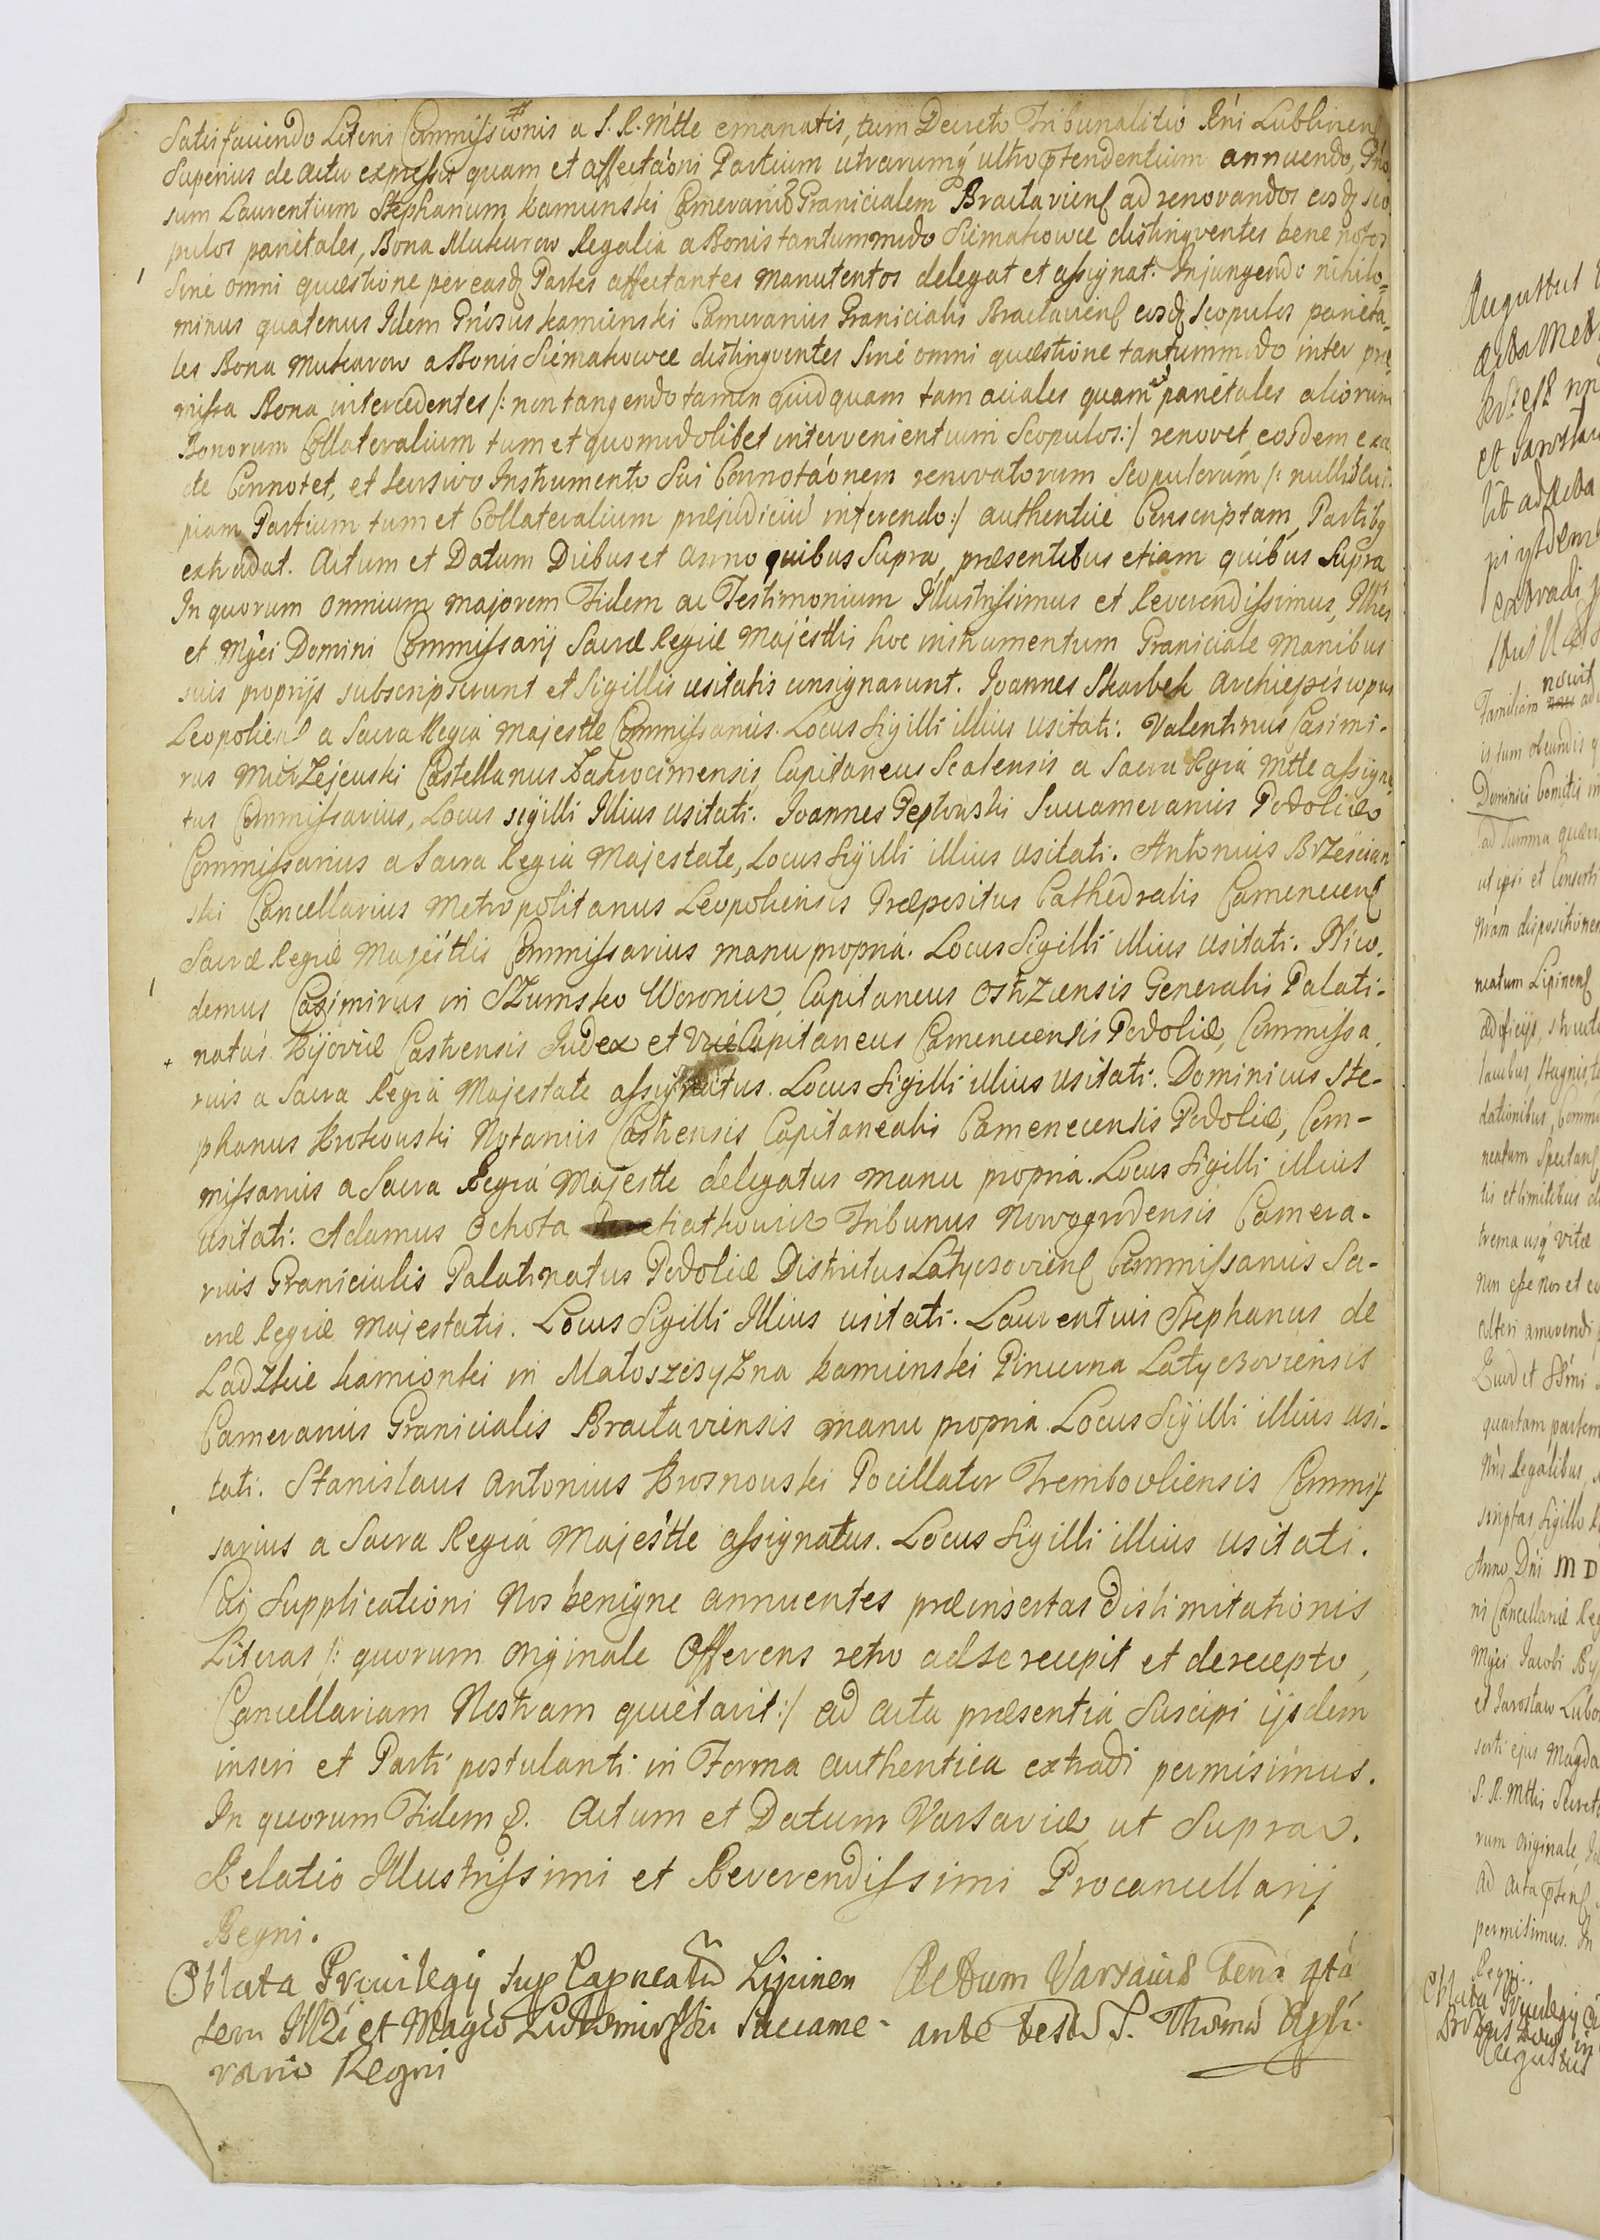 Satisfaciendo Literis Commissionis a S. R. Mtte emanatis, tum Decreto Tribunalitio Rni Lublinens
Superius de actu expressis quam et affectaoni Partium utrarumq ultro ptendentium annuendo,
sum Laurentium Stephanum Kamunski Camerarium Granicialem Braclaviens ad renovandos eosdq sco
pulos parietales, Bona Mukarow Regalia a Bonis tantummodo Siemakowce distingventes bene notos
Sine omni quæstione per easdq Partes affectantes manutentos delegat et assignat. Injungendo nihilo-
minus quatenus Idem Grosus Kamienski Camerarius Granicialis Braclaviens eosdq Scopulos parieta-
les Bona Mukarow a Bonis Siemakowce distingventes Sine omni quæstione tantummodo inter præ
missa Bona intercedentes /: non tangendo tamen quidquam tam aciales quam parietales aliorum
Bonorum Collateralium tum et quomodolibet intervenientium Scopulos :/ renovet, eosdem exa
cte Connotet, et sensivo Instrumento Sui Connotaonem renovatorum Scopulorum /: nulli cui
piam Partium tum et Collateralium præjudiciu inferendo :/ authentice Conscriptam, Partibq
extradat. Actum et Datum Diebus et anno quibus Supra, præsentibus etiam quibus Supra
In quorum omnium majorem Fidem ac Testimonium Illustrissimus et Reverendissimus, Illres
et Mgci Domini Commissarij Sacræ Regiæ Majestis hoc instrumentum Graniciale Manibus
suis proprijs subscripserunt et Sigillis usitatis consignarunt. Joannes Skarbek Archiepiscopus
Leopoliens a Sacra Regia Majestte Commissarius. Locus Sigilli illius usitati. Valentinus Casimi-
rus MichZejewski Castellanus Zakrocimensis, Capitaneus Scalensis a Sacra Rgia Mtte assigna
tus Commissarius, Locus sigilli Illius usitati. Joannes Peplowski Succamerarius Podoliæ
Commissarius a Sacra Regia Majestate, Locus Sigilli illius usitati. Antonius BrZescian
ski Cancellarius Metropolitanus Leopoliensis Præpositus Cathedralis Camenecens
Sacræ Regiæ Majesttis Commissarius manu propria. Locus Sigilli illius usitati. Nico-
demus Casimirus in SZumsko Woronicz, Capitaneus OstrZensis Generalis Palati-
natus Kijoviæ Castrensis Judex et ViceCapitaneus Camenecensis Podoliæ, Commissa
rius a Sacra Regia Majestate assignatus. Locus Sigilli illius usitati. Dominicus Ste-
phanus Krokowski Notarius Castrensis Capitanealis Camenecensis Podoliæ, Com-
missarius a Sacra Regia Majestte delegatus manu propria. Locus Sigilli illius
usitati: Adamus Ochota Tribunus Nowogrodensis Camera-
rius Granicialis Palatinatus Podoliæ Districtus Latyczoviens Commissarius Sa-
cræ Regiæ Majestatis. Locus Sigilli Illius usitati. Laurentius Stephanus de
LadZkie Kamionki in MatoszczyZna Kamienski Pincerna Latyczoviensis
Camerarius Granicialis Braclaviensis manu propria. Locus Sigilli illius usi-
tati. Stanislaus Antonius Krosnowski Pocillator Trembovliensis Commis
sarius a Sacra Regia Majestte assignatus. Locus Sigilli illius usitati.
Cui Supplicationi Nos benigne annuentes præinsertas Dislimitationis
Literas /: quorum Originale Offerens retro ad se recepit et de recepto,
Cancellariam Nostram quietavit :/ ad acta præsentia Suscipi ijsdem
inseri et Parti postulanti in Forma authentica extradi permisimus.
In quorum Fidem &. Actum et Datum Varsaviæ ut Supra.
Relatio Illustrissimi et Reverendissimi Procancellarij
Regni.
Oblata Privilegij sup Capneatu Lipinen
sem Illri et Magco Lubomirski Succame-
rario Regni
Actum Varsaviæ feria qta
ante festu S. Thomæ Apli.
Augustus
Acta Met
et Jarosla
ut ad Acta
extradi
Familiam
Dominici Comitis
ut ipsi et Consorti
Nram dispositionem
neatum Lipinens
ædificijs, struct
lacubus, stagnis
dationibus
neatum Spectans
tis et limitibus
trema usq vitæ
Non esse Nos et
alteri amovendi
quartam partem
Nris Regalibus,
scriptas, Sigillo
Anno Dni M D
ni Cancellariæ Reg
Mgci Jacobi
et Jaroslaw Lubo
sorti ejus Magda
S. R. Mttis Secret
rum originale,
ad Acta
permisimus. In
Regni.
Oblata Privilegij
Augustus